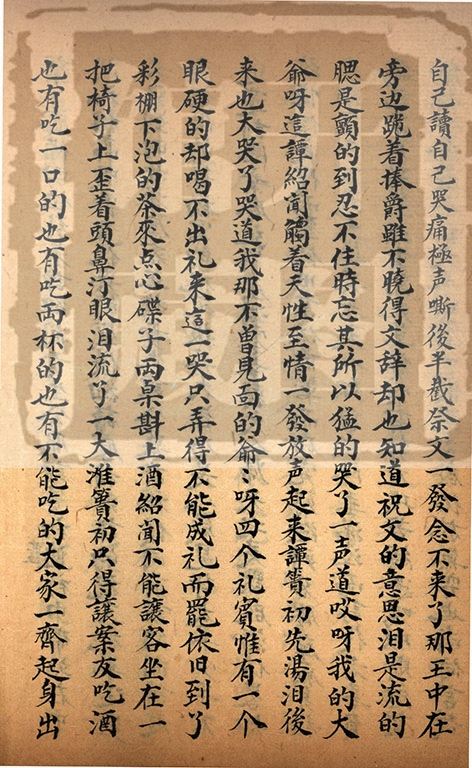 自己讀自己哭痛極声嘶後半截祭文一發念不来了那王中在
旁边跪着捧爵雖不曉得文辞却也知道祝文的意思泪是流的
腮是顫的到忍不住時忘其所以猛的哭了一声道哎呀我的大
爺呀這譚紹聞觸着天性至情一發放声起来譚簣初先湯泪後
来也大哭了哭道我那不曾見面的爺〻呀四个礼賓惟有一个
眼硬的却喝不出礼来這一哭只弄得不能成礼而罷依旧到了
彩棚下泡的茶來点心碟子两桌斟上酒紹聞不能讓客坐在一
把椅子上歪着頭鼻汀眼泪流了一大滩簣初只得讓案友吃酒
也有吃一口的也有吃两杯的也有不能吃的大家一齊起身出